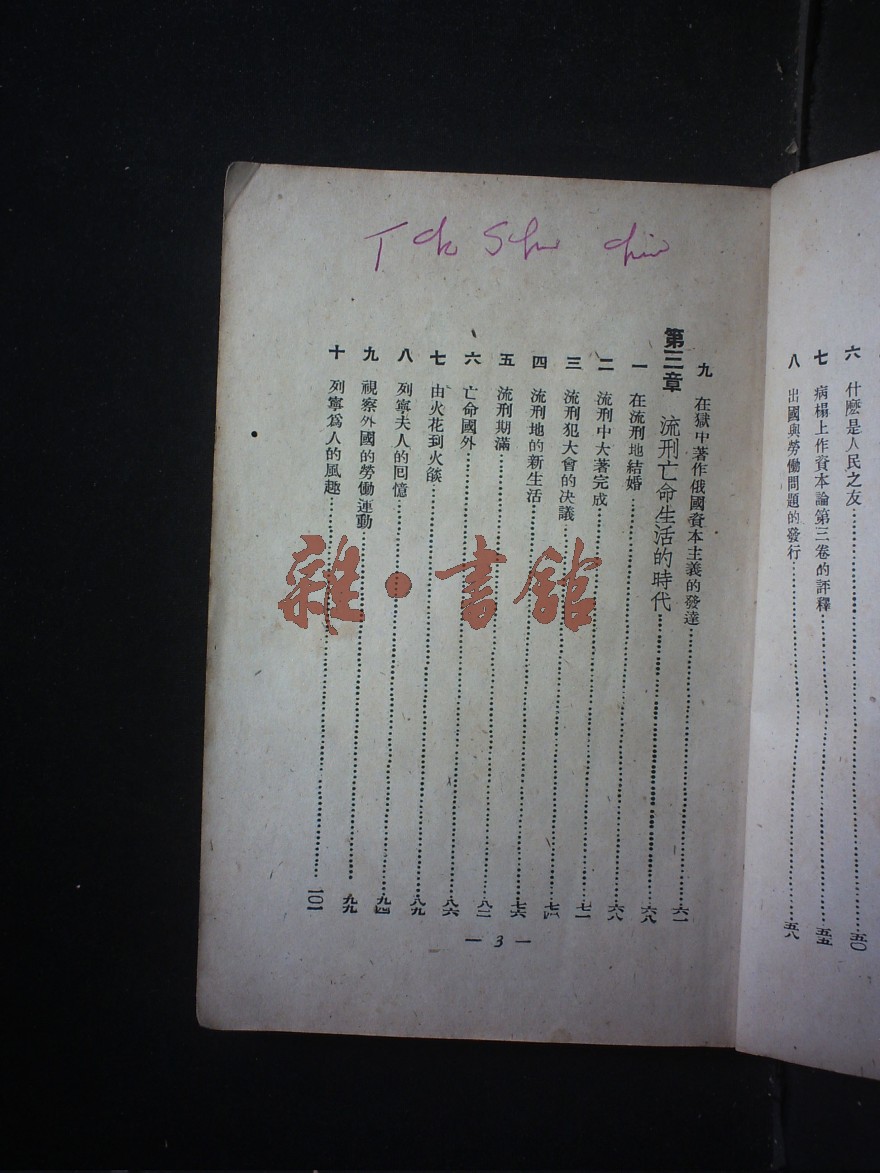 六 什麽是人民之友……五〇
七 病榻上作資本論第三卷的評釋……五五
八 出國與勞働問題的發行……五八
Tck
九 在獄中著作俄國資本主義的發達……六一
第三章 流刑亡命生活的時代……六八
一 在流刑地結婚……六八
二 流刑中大著完成……七一
三 流刑犯大會的決議……七四
四 流刑地的新生活……七六
五 流刑期滿……八二
六 亡命國外……八六
七 由火花到火燄……八九
八 列寧夫人的囘憶……九四
九 視察外國的勞働運動……九九
十 列寧爲人的風趣……一〇一
— 3 —
雜·書館